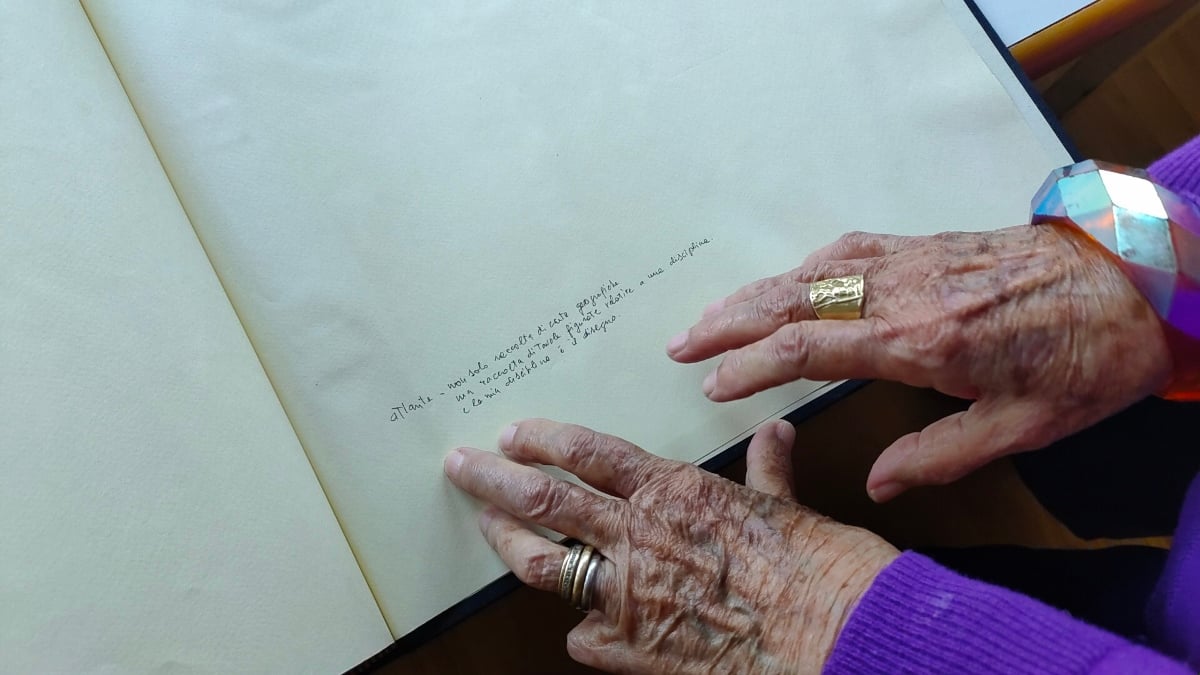 atlante - non solo raccolta di carte geografiche
ma raccolta di tavole figurate relative a una disciplina.
e la mia disciplina è il disegno.